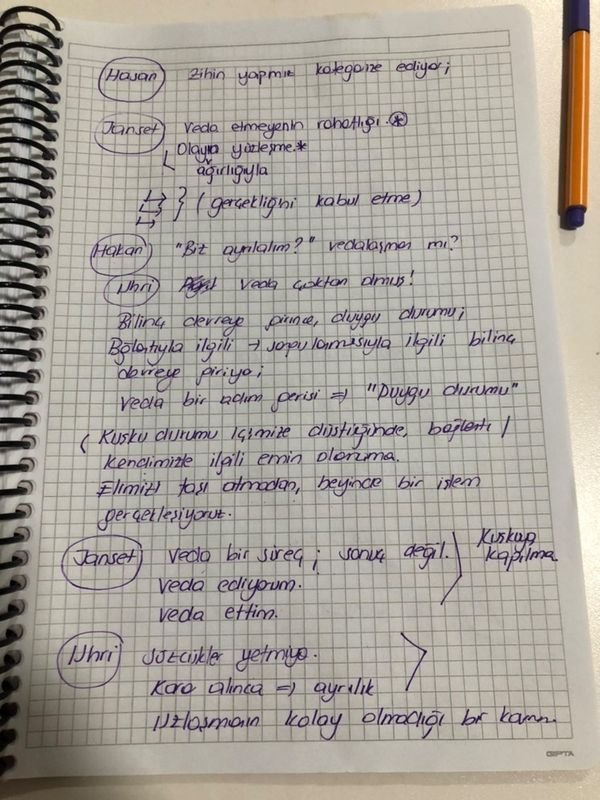 Hasan zihin yapımız kategorize ediyor;
Janset veda etmeyenin rahatlığı. *
Olayla yüzleşme. *
ağırlığıyla
(gerçekliğini kabul etme)
Hakan "Biz ayrılalım?" vedalaşması mı?
Uhri veda çoktan olmuş!
Bilinç devreye girince, duygu durumu;
Bağlantıyla ilgili → sorgulamasıyla ilgili bilinç
devreye giriyo;
veda bir adım gerisi ⇒ "Duygu durumu"
( Kuşku durumu içimize düştüğünde, bağlantı /
kendimizle ilgili emin olamama.
Elimizi taşı atmadan, beyinde bir işlem
gerçekleşiyoruz.
Janset veda bir süreç; sonuç değil. Kuşkuya
kapılma.
veda ediyorum.
veda ettim.
Uhri sözcükler yetmiyo.
Karar alınca ⇒ ayrılık
Uzlaşmanın kolay olmadığı bir
GIPTA